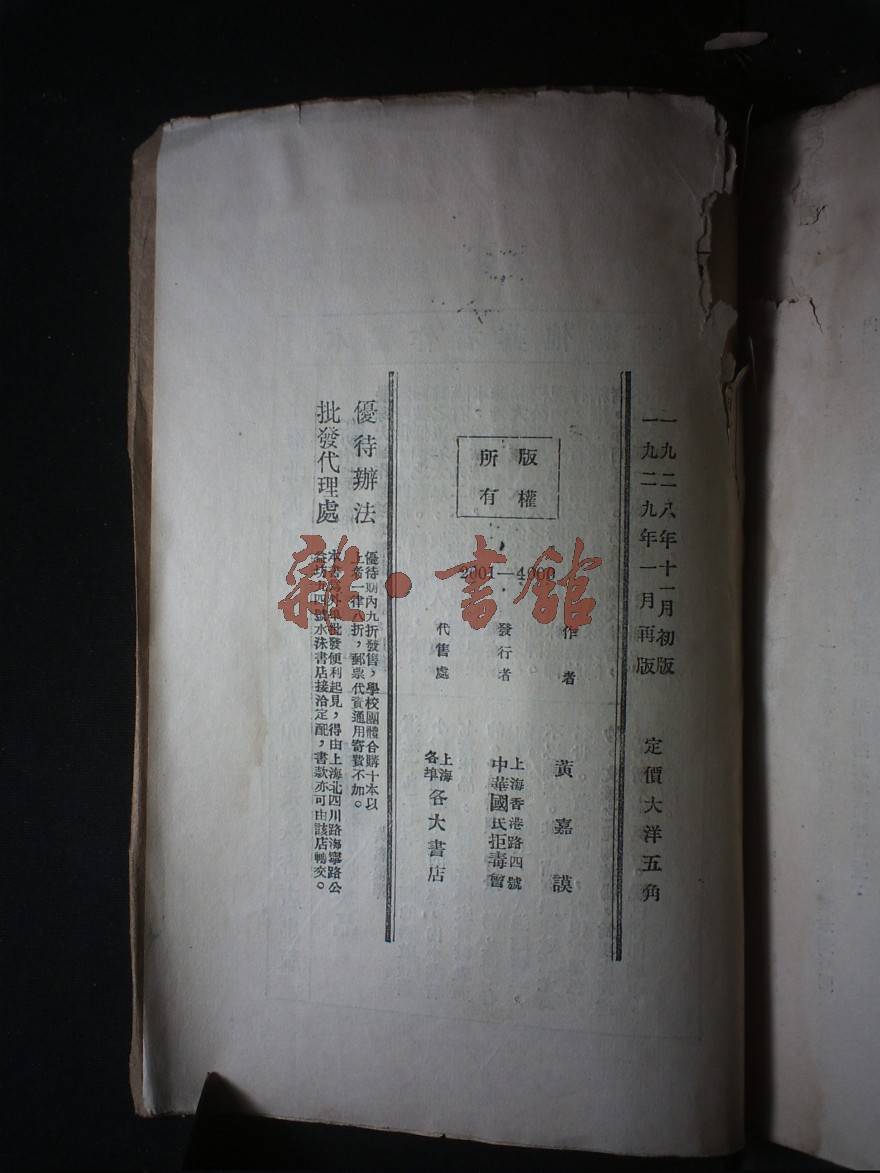 一九二八年十一月初版
一九二九年一月再版
定價大洋五角
版權
所有
2001—4000
作者 黃嘉謨
發行者 上海香港路四號
中華國民拒毒會
代售處 上海
各埠 各大書店
優待辦法 優待期內九折發售,學校團體合購十本以
上者一律八折,郵票代實通用寄費不加。
批發代理處 本書為外埠批發便利起見,得由上海北四川路海寧路公
益坊九四號水沫書店接洽定配,書款亦可由該店轉交。
雜·書館